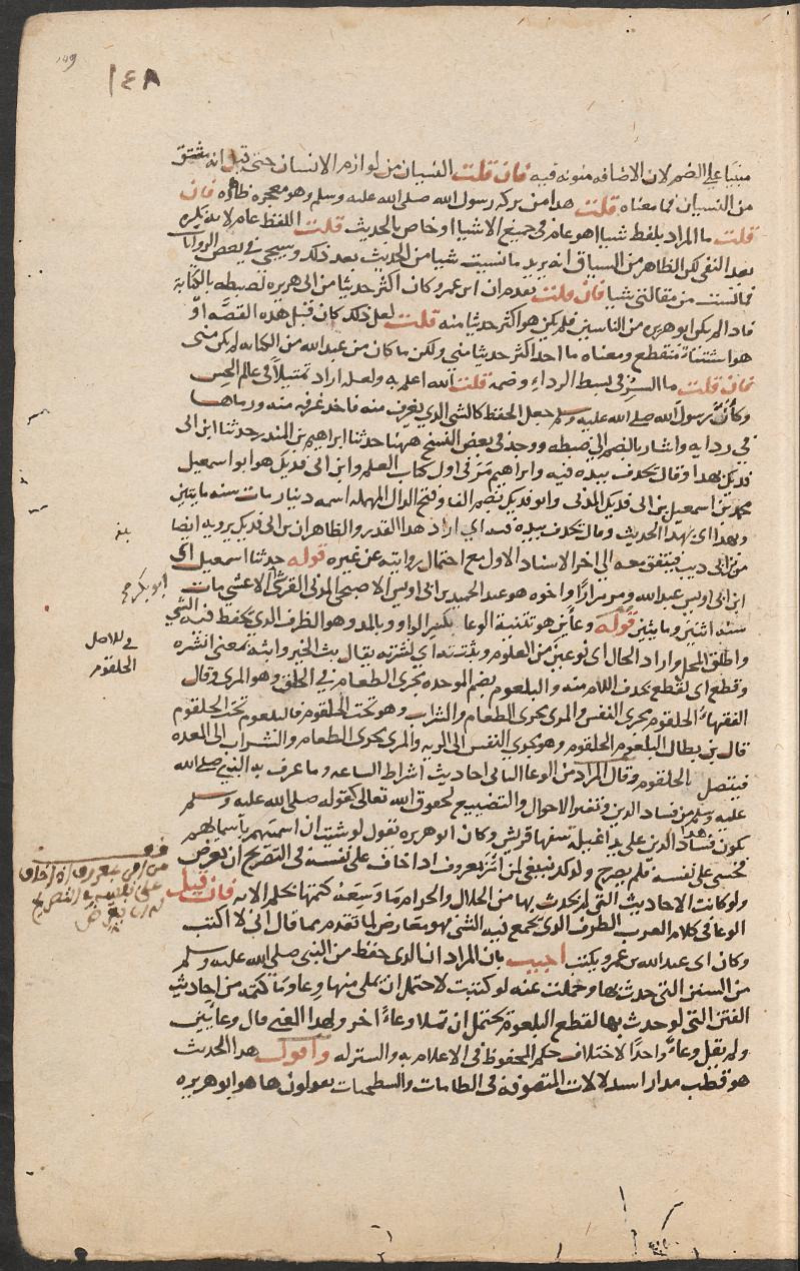 149
١٤٨
مبنيا على الضم لان الاضافه منويه فيه فان قلت النسيان من لوازم الانسان حتى قيل انه مشتق
من النسيان فما معناه قلت هذا من بركه رسول الله صلى الله عليه وسلم وهو معجزه ظاهره فان
قلت ما المراد بلفظ شيا اهو عام في جميع الاشيا او خاص بالحديث قلت اللفظ عام لانه نكره
بعد النفي لكن الظاهر من السياق انه يريد ما نسيت شيا من الحديث بعد ذلك وسيجي في بعض الروايات
فما نسيت من مقالتي شيا فان قلت بعد مر ان ابن عمرو كان اكثر حديثا من ابي هريره لضبطه بالكتابة
فاذا لم يكن ابو هريره من الناسين فلم يكن هو اكثر حديثا منه قلت لعل ذلك كان قبل هذه القصه او
هو استثناء منقطع ومعناه ما احد اكثر حديثا مني ولكن ما كان من عبد الله من الكتابه لم يكن مني
فان قلت ما السر في بسط الرداء وضمه قلت الله اعلم به ولعله اراد تمثيلا في عالم الحس
وكأن رسول الله صلى الله عليه وسلم جعل الحفظ كالشي الذي يغرف منه فاخذ غرفه منه ورماها
في ردايه واشار بالضم الى ضبطه ووجد في بعض النسخ ههنا حدثنا ابراهيم بن المنذر حدثنا ابن ابي
فديك بهذا وقال يحذف بيده فيه وابراهيم مر في اول كتاب العلم وابن ابي فديك هو ابو اسمعيل
محمد بن اسمعيل بن ابي فديك المدني وابو فديك بضم الفا وفتح الدال المهمله اسمه دينار مات سنه مايتين
وبهذا اي بهذا الحديث وقال يحذف بيده فيه اي اراد هذا القدر والظاهر ان بن ابي فديك يرويه ايضا
عن بن ابي ذيب فيتفق معه الى اخر الاسناد الاول مع احتمال روايته عن غيره قوله حدثنا اسمعيل اي
ابن ابي اويس عبد الله ومر مرارا واخوه هو عبد الحميد بن ابي اويس الاصبحي المدني القرشي الاعشي مات
سنه اثنين ومايتين قوله وعاين هو تثنية الوعا بكسر الواو وبالمد وهو الظرف الذي يحفظ فيه الشي
واطلق المحل واراد الحال اي نوعين من العلوم وبثثته اي نشرته يقال بث الخبر وابثه بمعنى انشره
وقطع اي لقطع بحذف اللام منه والبلعوم بضم الموحده مجرى الطعام في الحلق وهو المري وقال
الفقهاء الحلقوم مجرى النفس والمري مجرى الطعام والشراب وهو تحت الحلقوم فالبلعوم تحت الحلقوم
قال بن بطال البلعوم الحلقوم وهو مجرى النفس الى الريه والمري مجرى الطعام والشراب الى المعده
فيتصل بالحلقوم وقال المراد من الوعا الثاني احاديث اشراط الساعه وما عرف به النبي صلى الله
عليه وسلم من فساد الدين وتغير الاحوال والتضييع لحقوق الله تعالى كقوله صلى الله عليه وسلم
يكون فساد هذا الدين على يد اغيلمه سفها قريش وكان ابو هريره يقول لو شيت ان اسميهم باسمايهم
فخشي على نفسه فلم يصرح وكذلك ينبغي لمن امر بمعروف اذا خاف على نفسه في التصريح ان يعرض
ولو كانت الاحاديث التي لم يحدث بها من الحلال والحرام ما وسعه كتمها بحكم الايه فان قيل
الوعا في كلام العرب الظرف الذي يجمع فيه الشي فهو معارض لما تقدم مما قال اني لا اكتب
وكان اي عبد الله بن عمرو يكتب اجيب بان المراد ان الذي حفظ من النبي صلى الله عليه وسلم
من السنن التي حدث بها وحملت عنه لو كتبت لاحتمل ان يملى منها وعاء وما كتمه من احاديث
الفتن التي لو حدث بها لقطع البلعوم يحتمل ان تملا وعاء اخر ولهذا المعنى قال وعاءين
ولم يقل وعاء واحدا لاختلاف حكم المحفوظ في الاعلام به والستر له واقول هذا الحديث
هو قطب مدار استدلالات المتصوفه في الطامات والشطحيات يقولون ها هو ابو هريره
بلغ
ابو بكر
في الاصل
الحلقوم